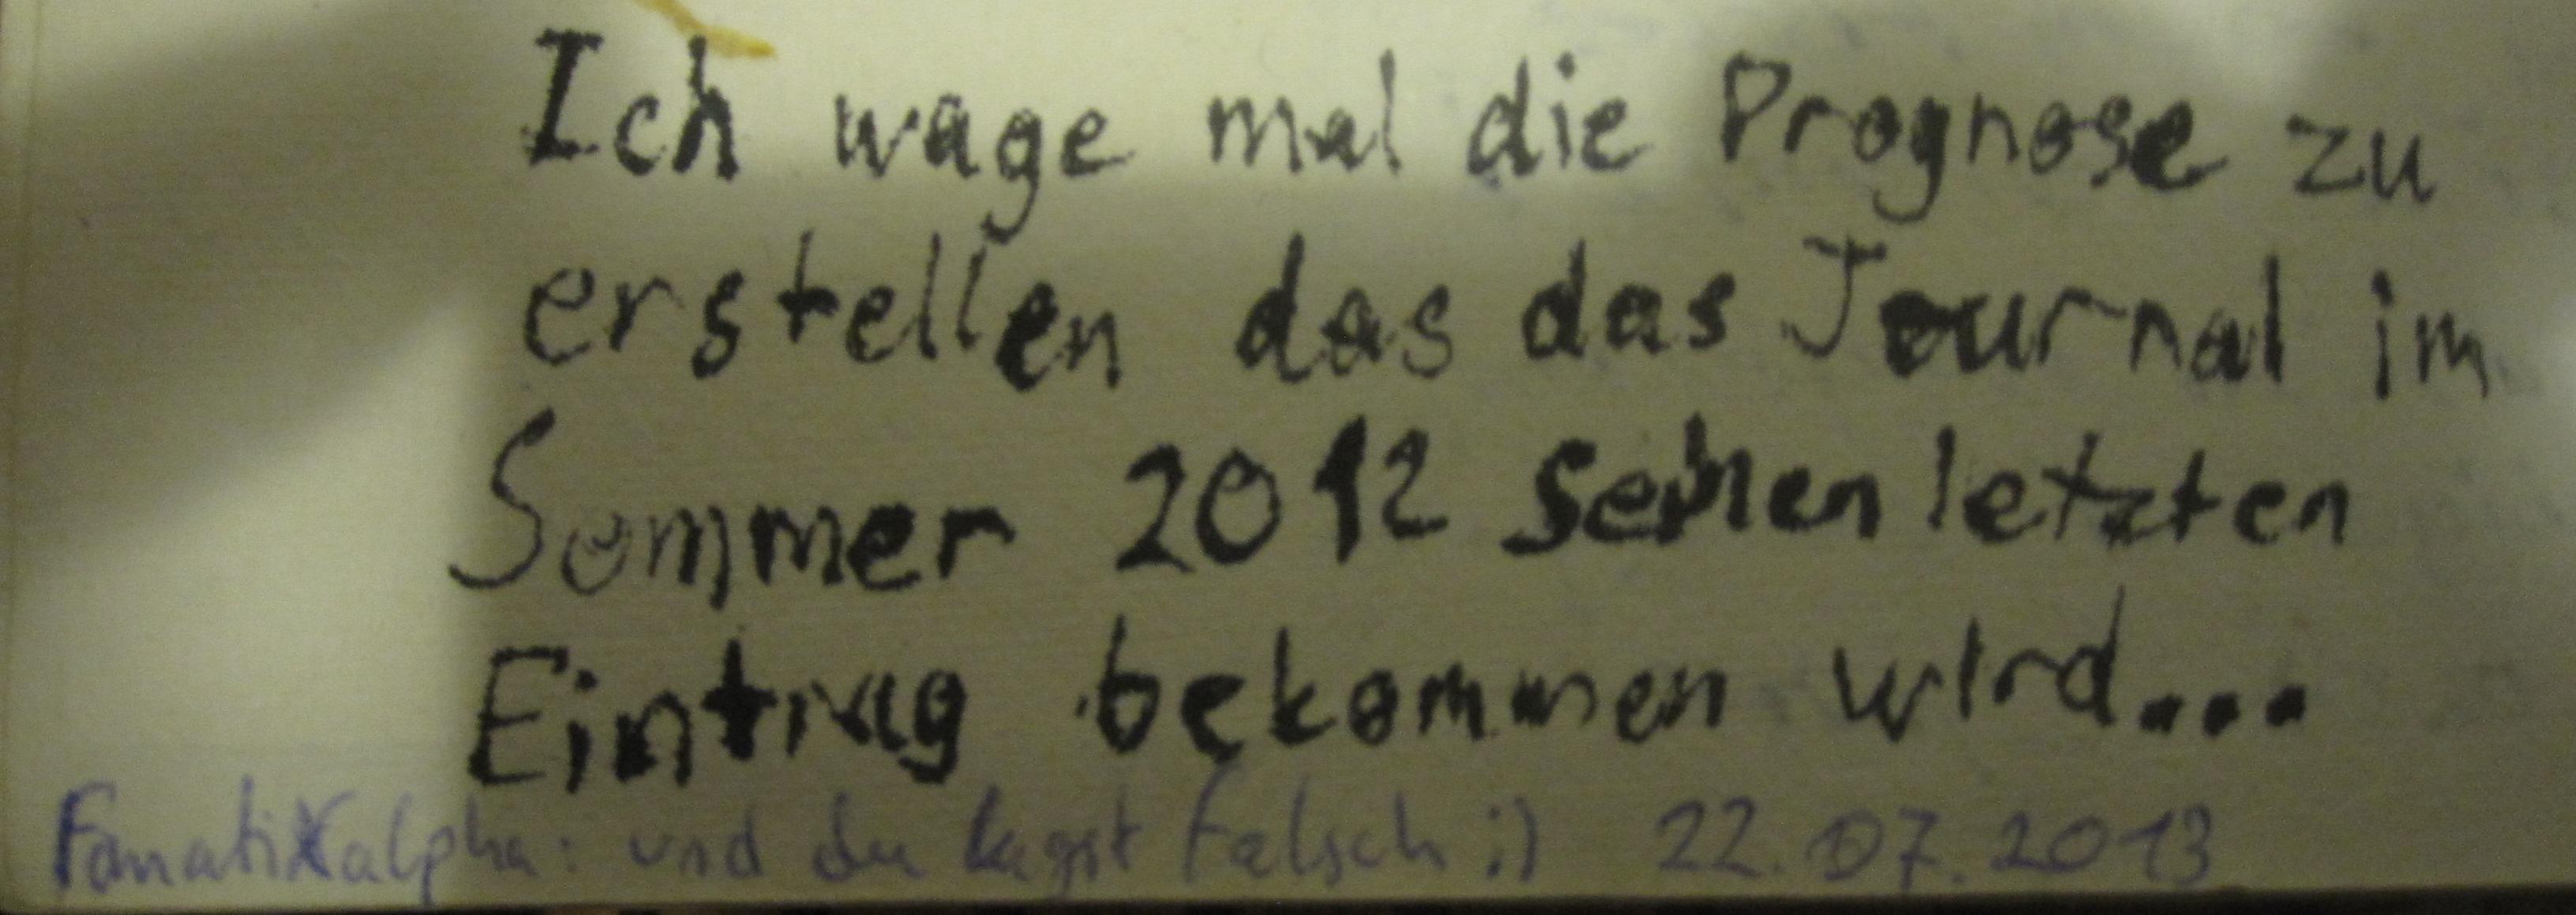 Ich wage mal die Prognose zu
erstellen das das Journal im
Sommer 2012 seinen letzten
Eintrag bekommen wird...
FanatiXalpha: und du lagst Falsch ;) 22.07.2013